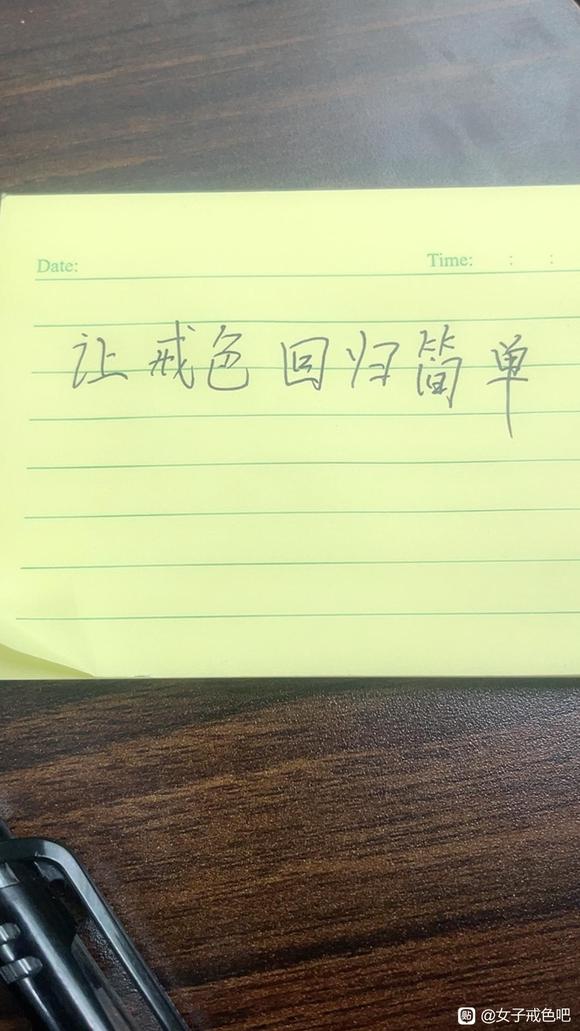 Date:
Time: : :
让戒色回归简单
贴 @女子戒色吧